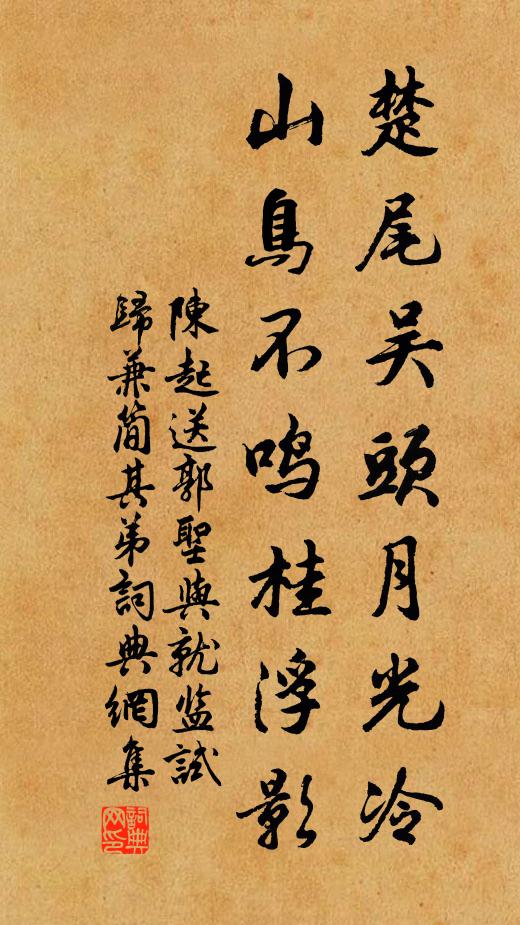 楚尾吴頭月光冷
山鳥不鳴桂浮影
陳起送郭聖與就监試
歸兼简其弟詞典網集
詞典
网印